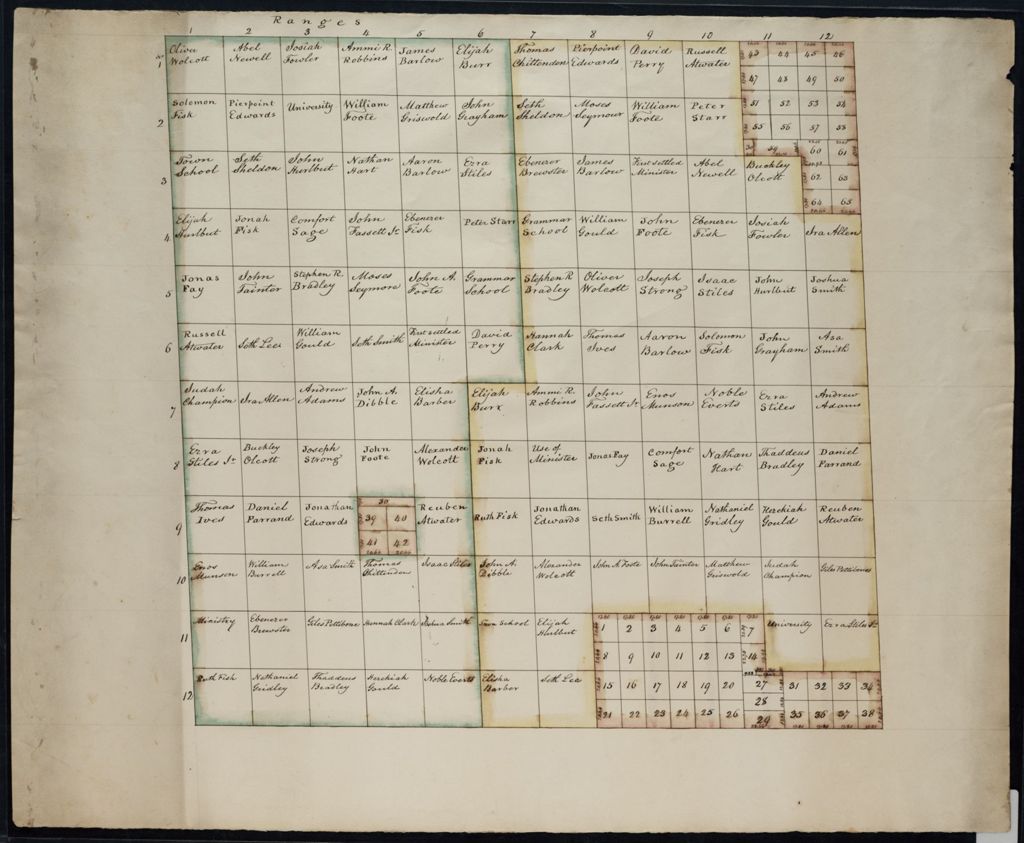 Ranges
1 2 3 4 5 6 7 8 9 10 11 12
1
Oliver Wolcott
Abel Newell
Josiah Fowler
Ammi R. Robbins
James Barlow
Elijah Burr
Thomas Chittendon
Pierpoint Edwards
David Perry
Russell Atwater
43 44 45 46
47 48 49 50
2
Solomon Fisk
Pierpoint Edwards
University
William Foote
Matthew Griswold
John Grayham
Seth Sheldon
Moses Seymour
William Foote
Peter Starr
51 52 53 54
55 56 57 58
59 60 61
3
Town School
Seth Sheldon
John Hurlbut
Nathan Hart
Aaron Barlow
Ezra Stiles
Ebenezer Brewster
James Barlow
First settled Minister
Abel Newell
Buckley Olcott
62 63
64 65
4
Elijah Hurlbut
Jonah Fisk
Comfort Sage
John Fassett Jr
Ebenezer Fisk
Peter Starr
Grammar School
William Gould
John Foote
Ebenezer Fisk
Josiah Fowler
Ira Allen
5
Jonas Fay
John Tainter
Stephen R. Bradley
Moses Seymore
John A. Foote
Grammar School
Stephen R Bradley
Oliver Wolcott
Joseph Strong
Isaac Stiles
John Hurlbut
Joshua Smith
6
Russell Atwater
Seth Lee
William Gould
Seth Smith
First settled Minister
David Perry
Hannah Clark
Thomas Ives
Aaron Barlow
Solomon Fisk
John Grayham
Asa Smith
7
Judah Champion
Ira Allen
Andrew Adams
John A. Dibble
Elisha Barber
Elijah Burr
Ammi R. Robbins
John Fassett Jr
Enos Munson
Noble Everts
Ezra Stiles
Andrew Adams
8
Ezra Stiles Jr
Buckley Olcott
Joseph Strong
John Foote
Alexander Wolcott
Jonah Fisk
Use of Minister
Jonas Fay
Comfort Sage
Nathan Hart
Thaddeus Bradley
Daniel Farrand
9
Thomas Ives
Daniel Farrand
Jonathan Edwards
30
39 40
41 42
Reuben Atwater
Ruth Fisk
Jonathan Edwards
Seth Smith
William Burrell
Nathaniel Gridley
Hezekiah Gould
Reuben Atwater
10
Enos Munson
William Burrell
Asa Smith
Thomas Chittenden
Isaac Stiles
John A. Dibble
Alexander Wolcott
John A Foote
John Tainter
Matthew Griswold
Judah Champion
Giles Pettibone
11
Ministry
Ebenezer Brewster
Giles Pettibone
Hannah Clark
Joshua Smith
Town School
Elijah Hurlbut
1 2 3 4 5 6 7
8 9 10 11 12 13 14
University
Ezra Stiles Jr
12
Ruth Fisk
Nathaniel Gridley
Thaddeus Bradley
Hezekiah Gould
Noble Everts
Elisha Barber
Seth Lee
15 16 17 18 19 20 27 31 32 33 34
28
21 22 23 24 25 26 29 35 36 37 38